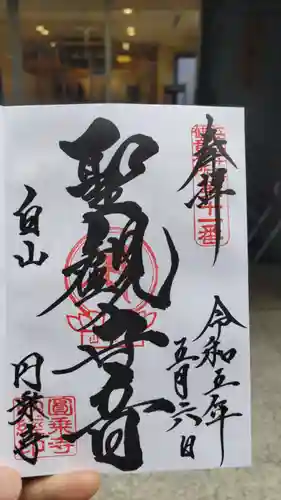 奉拝
令和五年
五月六日
聖観世音
白山
円乗寺
圓乗寺